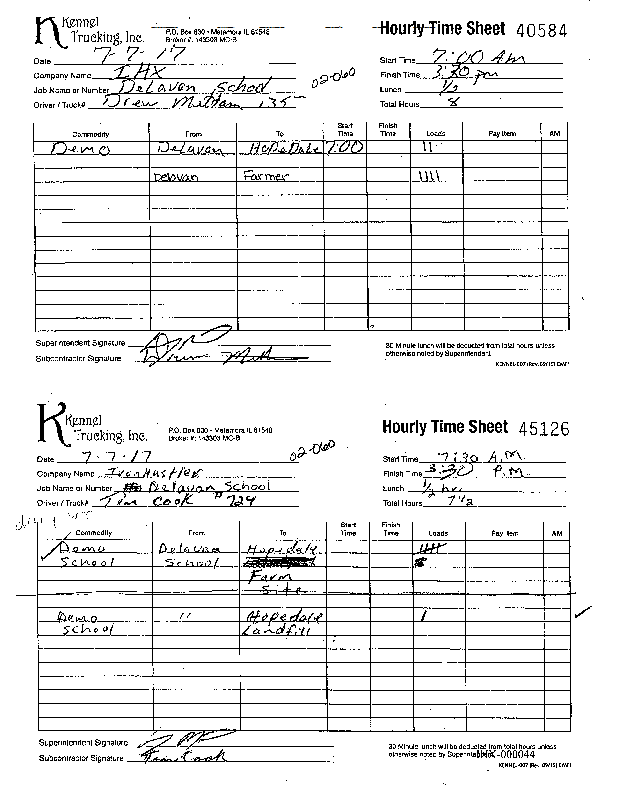 Kennel Trucking, Inc. P.O. Box 630 - Metamora IL 61548 Broker #: 143303 MC-B Hourly Time Sheet 40584
Date 7-7-17 Start Time 7:00 AM
Company Name IHX 02-060 Finish Time 3:30 pm
Job Name or Number Delavan School Lunch 1/2
Driver / Truck# Drew 135 Total Hours 8
Commodity From To Start Time Finish Time Loads Pay Item AM
Demo Delavan HopeDale 7:00 II
Delavan Farmer IIII
Superintendent Signature
Subcontractor Signature
30 Minute lunch will be deducted from total hours unless
otherwise noted by Superintendent
KENNEL-007 (Rev. 09/15)
Kennel Trucking, Inc. P.O. Box 630 - Metamora IL 61548 Broker #: 143303 MC-B Hourly Time Sheet 45126
Date 7-7-17 02-060 Start Time 7:30 A.M.
Company Name Iron Hustler Finish Time 3:30 P.M.
Job Name or Number Delavan School Lunch 1/2 hr.
Driver / Truck# Tim Cook # 724 Total Hours 7 1/2
Commodity From To Start Time Finish Time Loads Pay Item AM
Demo Delavan Hopedale
School School
Farm
Site
Demo " Hopedale I
School Landfill
Superintendent Signature
Subcontractor Signature Tim Cook
30 Minute lunch will be deducted from total hours unless
otherwise noted by Superintendent -000044
KENNEL-007 (Rev. 09/15)